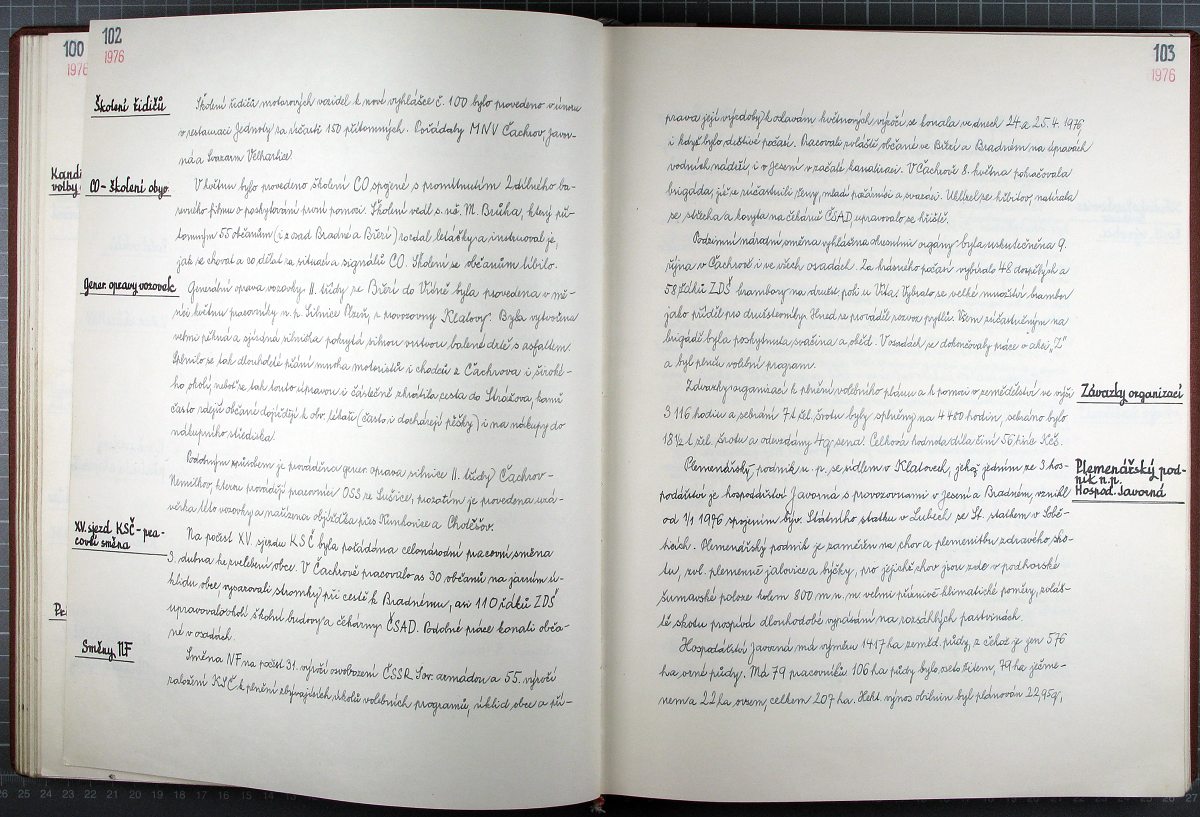 100
1976
102
1976
Kandi
volby
Pe
Školení řidičů
Školení řidičů motorových vozidel k nové vyhlášce č. 100 bylo provedeno v únoru
v restauraci Jednoty za účasti 150 přítomných. Pořádaly MNV Čachrov, Javor-
ná a Svazarm Velhartice
CO - školení obyv.
V květnu bylo provedeno školení CO spojené s promítnutím 2 dílného ba-
revného filmu o poskytování první pomoci. Školení vedl s. uč. M. Brůha, který pří-
tomným 55 občanům (i z osad Bradné a Bižrí) rozdal letáčky a instruoval je,
jak se chovat a co dělat za situací a signálů CO. Školení se občanům líbilo.
Gener. opravy vozovek
Generální oprava vozovky II. třídy ze Běšin do Vičně byla provedena v mě-
síci květnu pracovníky n. p. Silnice Plzeň, z provozovny Klatovy. Byla vytvořena
velmi pěkná a sjízdná silnička pokrytá silnou vrstvou balené drtě s asfaltem.
Splnilo se tak dlouholeté přání mnoha motoristů i chodců z Čachrova i široké-
ho okolí, neboť se tak touto úpravou i částečně zkrátila cesta do Strážova, kamž
často zdejší občané dojíždějí k obv. lékaři (často i docházejí pěšky) i na nákupy do
nákupního střediska.
Podobným způsobem je prováděna gener. oprava silnice II. třídy Čachrov -
Nemilkov, kterou provádějí pracovníci OSS ze Sušice, prozatím je provedena uzá-
věrka této vozovky a nařízena objížďka přes Kunkovice a Chotěšov.
XV. sjezd KSČ - pra-
covní směna
Na počest XV. sjezdu KSČ byla pořádána celonárodní pracovní směna
3. dubna ke zvelebení obce. V Čachrově pracovalo as 30 občanů na jarním ú-
klidu obce, vysazovali stromky při cestě k Bradnému, asi 110 žáků ZDŠ
upravovalo okolí školní budovy a čekárny ČSAD. Podobné práce konali obča-
né v osadách.
Směny NF
Směna NF na počest 31. výročí osvobození ČSSR Sov. armádou a 55. výročí
založení KSČ k plnění zbývajících úkolů volebních programů, úklid obce a pří-
103
1976
prava její výzdoby k oslavám květnových výročí se konala ve dnech 24. a 25. 4. 1976,
i když bylo deštivé počasí. Pracovali zvláště občané ve Bižrí a Bradném na úpravách
vodních nádrží, i v Jesení v začaté kanalizaci. V Čachrově 8. května pokračovala
brigáda, jíž se zúčastnili ženy, mladí požárníci a svazáci. Uklízel se hřbitov, natírala
se střecha a koryta na čekárně ČSAD, upravovalo se hřiště.
Podzimní národní směna vyhlášena okresními orgány byla uskutečněna 9.
října v Čachrově i ve všech osadách. Za krásného počasí vybíralo 48 dospělých a
58 žáků ZDŠ brambory na družst. poli u Víta. Vybralo se velké množství brambor
jako příděl pro družstevníky. Hned se prováděl rozvoz pytlů. Všem zúčastněným na
brigádě byla poskytnuta svačina a oběd. V osadách se dokončovaly práce v akci „Z"
a byl plněn volební program.
Závazky organizací
Závazky organizací k plnění volebního plánu a k pomoci v zemědělství ve výši
3 116 hodin a sebrání 7 t žel. šrotu byly splněny na 4 480 hodin, sebráno bylo
18 ½ t žel. šrotu a odevzdány 4 q sena. Celková hodnota díla činí 56 tisíc Kčs.
Plemenářský pod-
nik n. p.
Hospod. Javorná
Plemenářský podnik n. p. se sídlem v Klatovech, jehož jedním ze 3 hos-
podářství je hospodářství Javorná s provozovnami v Jesení a Bradném, vznikl
od 1/1 1976 spojením býv. Státního statku v Lubech se St. statkem v Sobě-
ticích. Plemenářský podnik je zaměřen na chov a plemenitbu zdravého sko-
tu, zvl. plemenné jalovice a býčky, pro jejichž chov jsou zde v podhorské
šumavské poloze kolem 800 m n. m. velmi příznivé klimatické poměry, zvláš-
tě skotu prospívá dlouhodobé vypásání na rozsáhlých pastvinách.
Hospodářství Javorná má výměru 1417 ha zeměd. půdy, z čehož je jen 576
ha orné půdy. Má 79 pracovníků. 106 ha půdy bylo zaseto žitem, 79 ha ječme-
nem a 22 ha ovsem, celkem 207 ha. Hekt. výnos obilnin byl plánován 22,95 q,